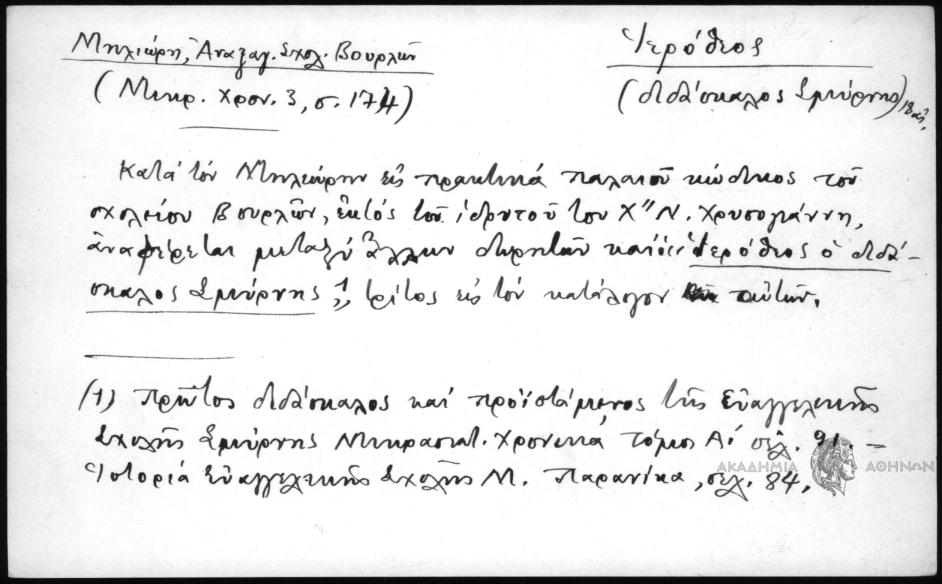 Μηλιώρη, Ἀναξαγ. Σχολ. Βουρλῶν
(Μικρ. Χρον. 3, σ. 174)
Ἱερόθεος
(διδάσκαλος Σμύρνης) 18 αἰ.
Κατά τόν Μηλιώρην εἰς πρακτικά παλαιοῦ κώδικος τοῦ
σχολείου Βουρλῶν, ἐκτός τοῦ ἱδρυτοῦ του Χ" Ν. Χρυσογιάννη,
ἀναφέρεται μεταξύ ἄλλων δωρητῶν καί ὁ "Ἱερόθεος ὁ διδά-
σκαλος Σμύρνης"1, τρίτος εἰς τόν κατάλογον αὐτῶν.
(1) Πρῶτος διδάσκαλος καί προϊστάμενος τῆς Εὐαγγελικῆς
Σχολῆς Σμύρνης Μικρασιατ. Χρονικά τόμος Α΄ σελ. 91. –
Ἱστορία Εὐαγγελικῆς Σχολῆς Μ. Παρανίκα, σελ. 84.
ΑΚΑΔΗΜΙΑ ΑΘΗΝΩΝ